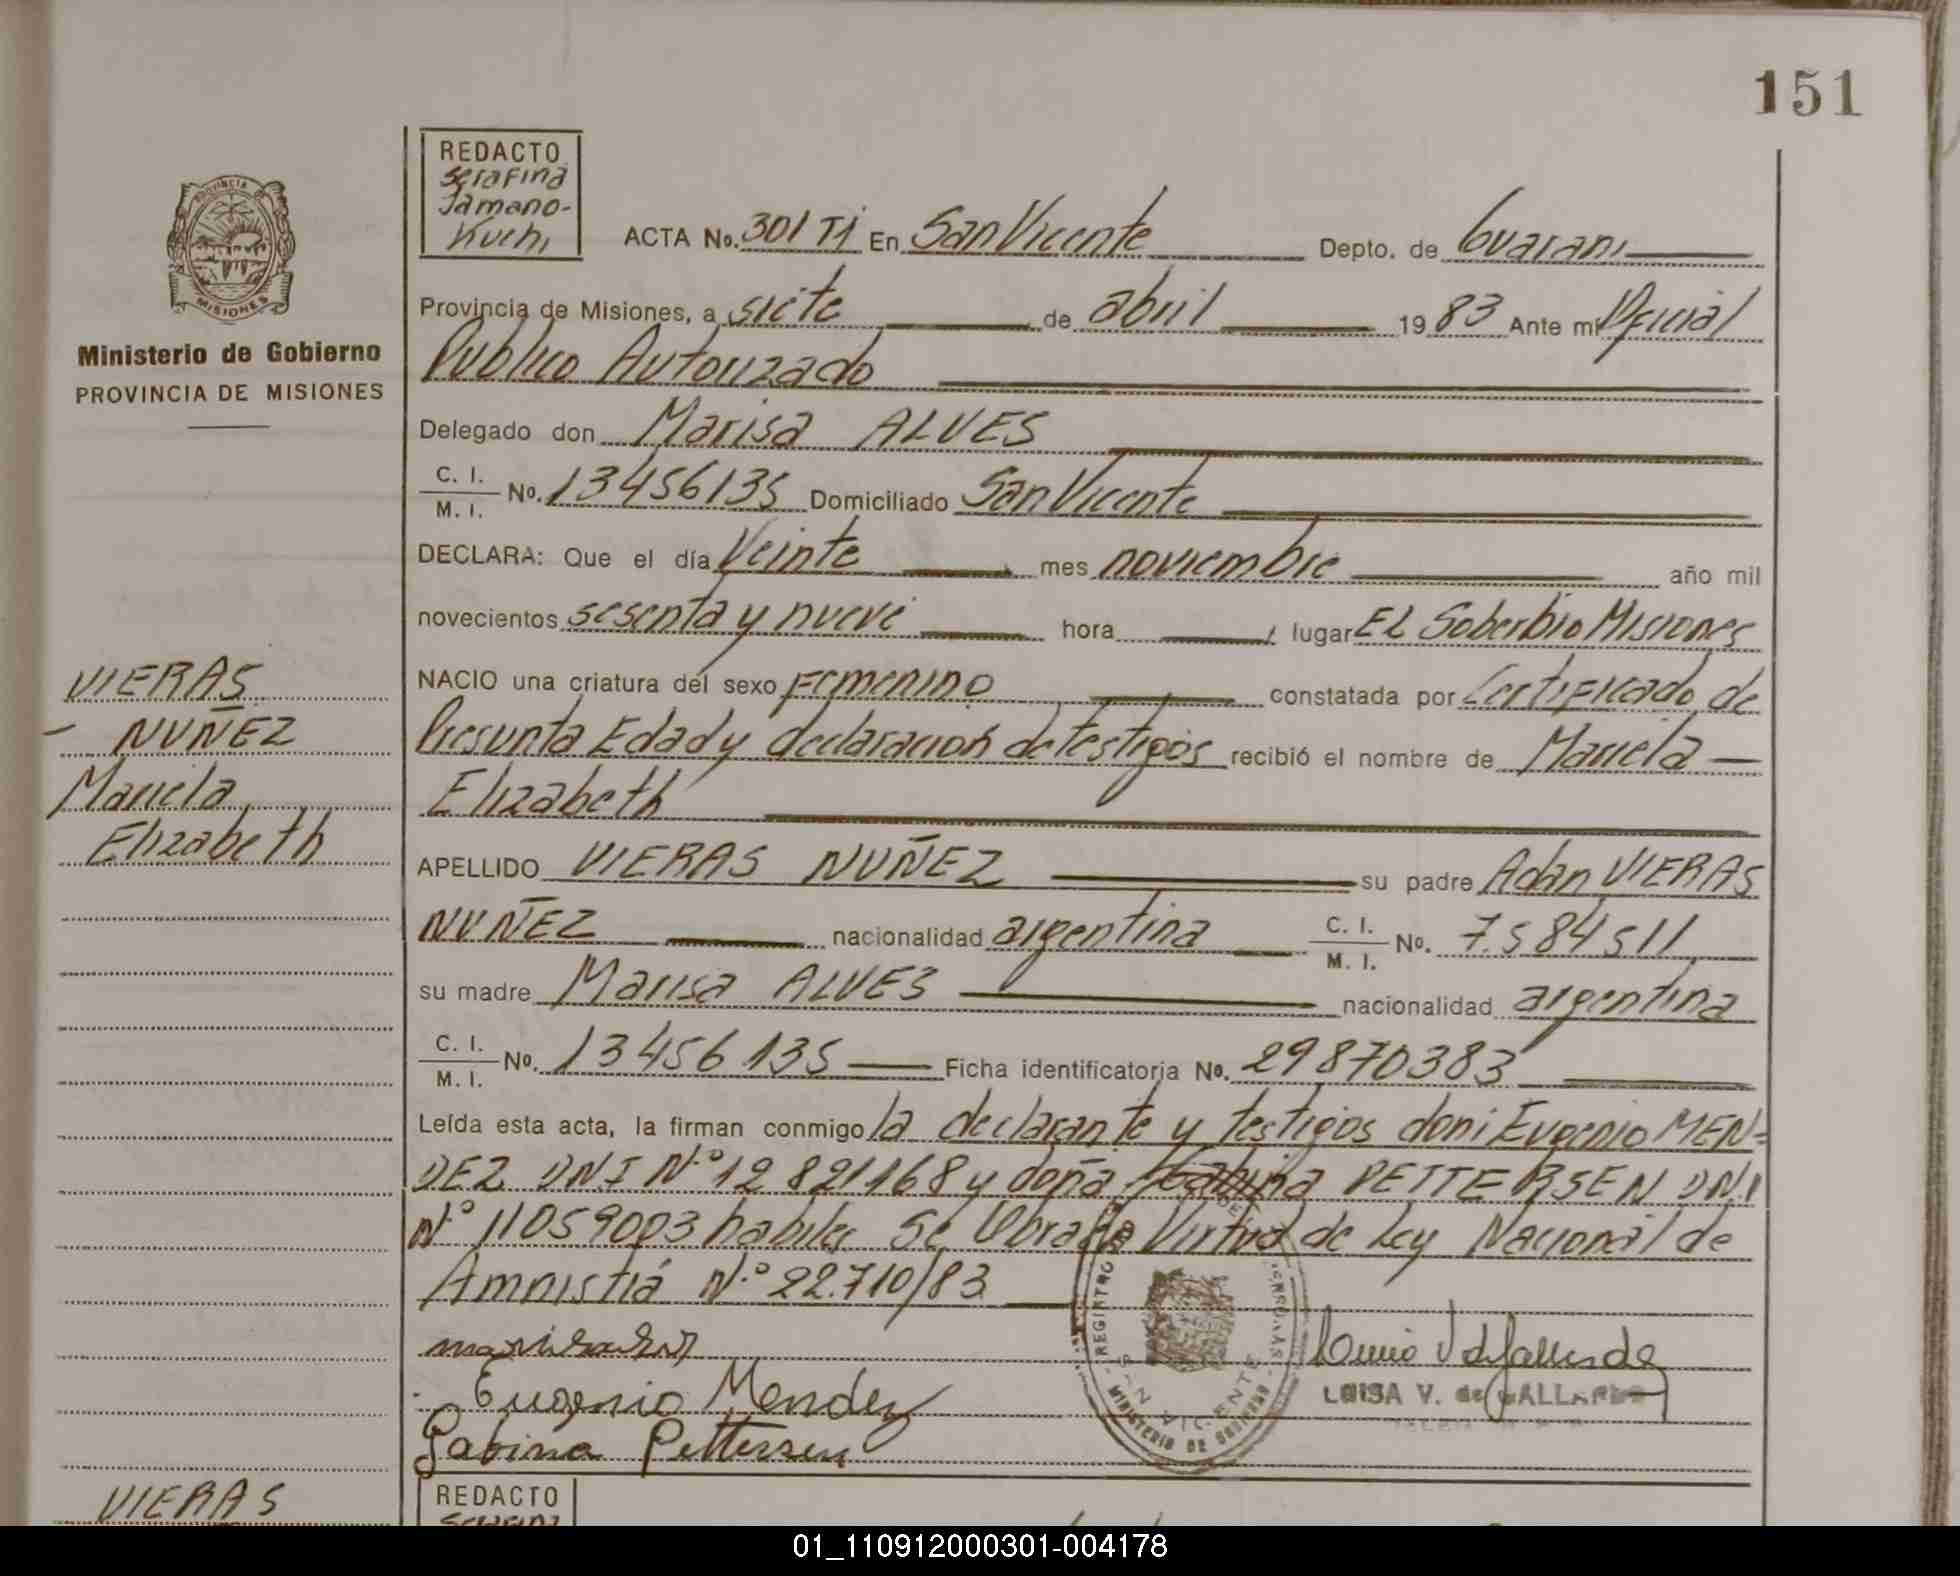 151
REDACTO
Serafina
Jamano-
Kuchi
ACTA No. 301 TI En San Vicente Depto. de Guarani
Provincia de Misiones, a siete de abril 1983 Ante mi Oficial
Publico Autorizado
Delegado don Marisa ALVES
C. I.
M. I. No. 13456135 Domiciliado San Vicente
DECLARA: Que el día Veinte mes noviembre año mil
novecientos sesenta y nueve hora lugar EL Soberbio Misiones
NACIO una criatura del sexo Femenino constatada por Certificado de
Presunta Edad y declaracion de testigos recibió el nombre de Mariela
Elizabeth
APELLIDO VIERAS NUÑEZ su padre Adan VIERAS
NUÑEZ nacionalidad argentina C. I.
M. I. No. 7.584511
su madre Marisa ALVES nacionalidad argentina
C. I.
M. I. No. 13456135 Ficha identificatoria No. 29870383
Leída esta acta, la firman conmigo la declarante y testigos don: Eugenio MEN=
DEZ DNI N° 12821168 y doña PETTERSEN DNI
N° 11059003 habiles Se Obra Virtud de Ley Nacional de
Amnistiá N° 22.710/83
Eugenio Mendez
Gabina Pettersen
LUISA V. de GALLARDO
SAN VICENTE
MINISTERIO DE GOBIERNO
PROVINCIA
MISIONES
Ministerio de Gobierno
PROVINCIA DE MISIONES
VIERAS
NUÑEZ
Mariela
Elizabeth
VIERAS
REDACTO
01_110912000301-004178